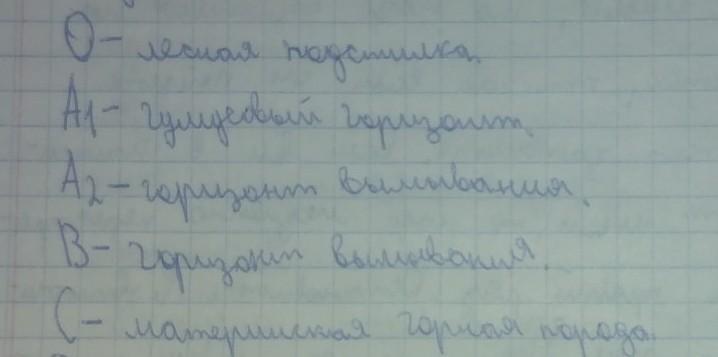 О - лесная подстилка.
А1 - гумусовый горизонт.
А2 - горизонт вымывания.
В - горизонт вымывания.
С - материнская горная порода.